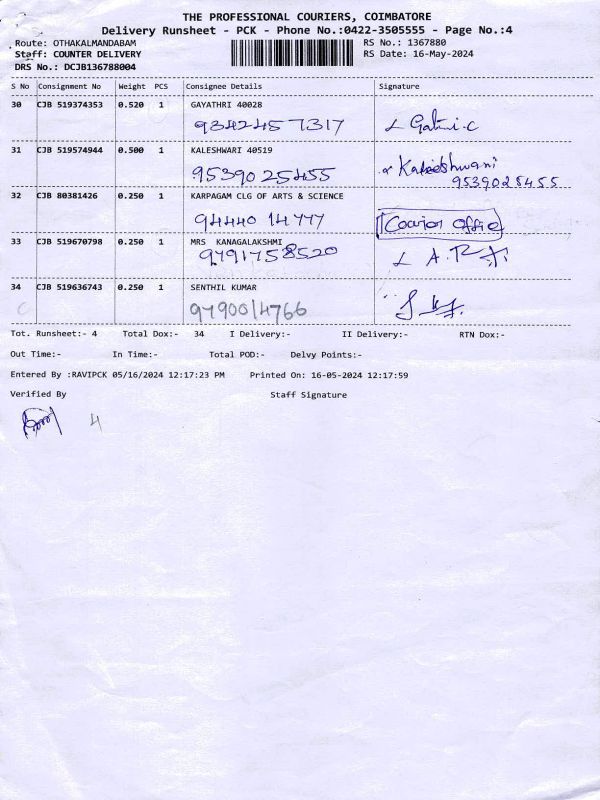 THE PROFESSIONAL COURIERS, COIMBATORE
Delivery Runsheet - PCK - Phone No.:0422-3505555 - Page No.:4
Route: OTHAKALMANDABAM RS No.: 1367880
Staff: COUNTER DELIVERY RS Date: 16-May-2024
DRS No.: DCJB136788004
S No Consignment No Weight PCS Consignee Details Signature
30 CJB 519374353 0.520 1 GAYATHRI 40028
9342457317
31 CJB 519574944 0.500 1 KALESHWARI 40519
9539025455 Kaleeshwani
9539025455
32 CJB 80381426 0.250 1 KARPAGAM CLG OF ARTS & SCIENCE
94440 14777 Courior office
33 CJB 519670798 0.250 1 MRS KANAGALAKSHMI
9791758520
34 CJB 519636743 0.250 1 SENTHIL KUMAR
9790014766
Tot. Runsheet:- 4 Total Dox:- 34 I Delivery:- II Delivery:- RTN Dox:-
Out Time:- In Time:- Total POD:- Delvy Points:-
Entered By :RAVIPCK 05/16/2024 12:17:23 PM Printed On: 16-05-2024 12:17:59
Verified By Staff Signature
4